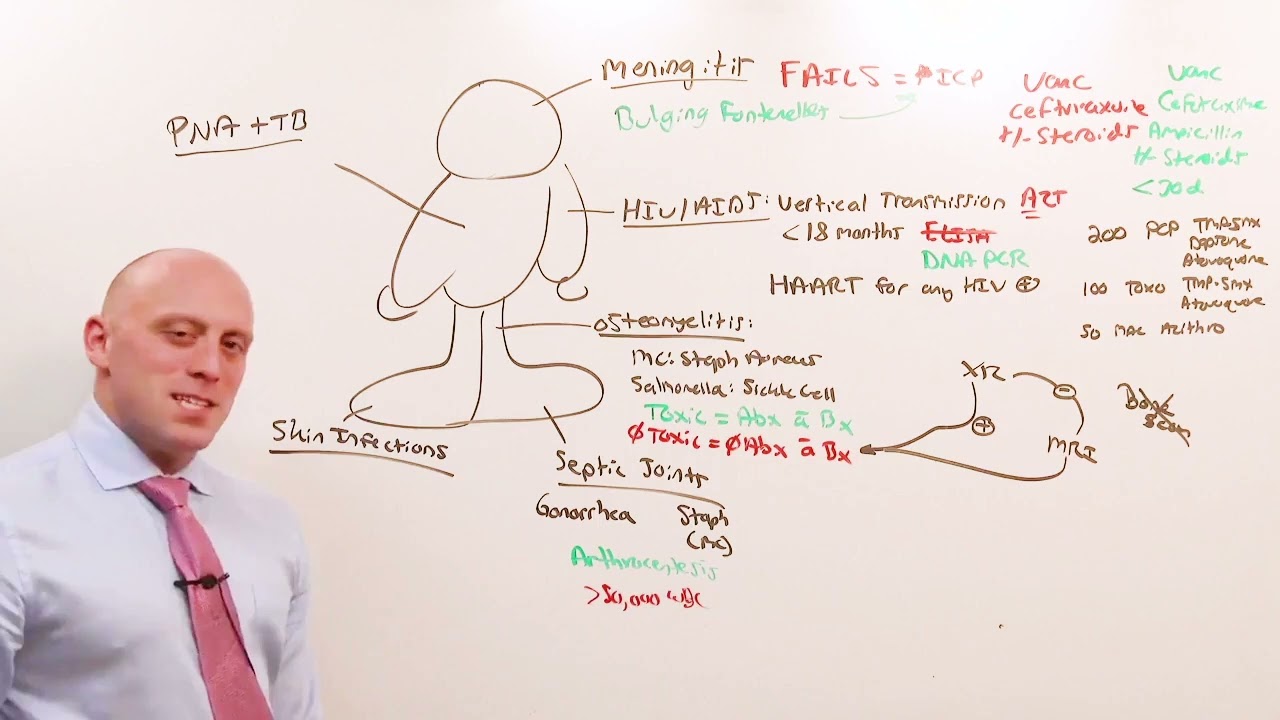 PNA + TB
Meningitis
FAILS = ↑ICP
Bulging Fontenelles
Vanc
Ceftriaxone
+/- Steroids
Vanc
Cefotaxime
Ampicillin
+/- Steroids
< 30d
HIV/AIDS: Vertical Transmission AZT
< 18 months ELISA
DNA PCR
HAART for any HIV ⊕
200 PCP TMP-SMX
Dapsone
Atovaquone
100 Toxo TMP-SMX
Atovaquone
50 MAC Azithro
Osteomyelitis:
MC: Staph Aureus
Salmonella: Sickle Cell
Toxic = Abx ā Bx
∅ Toxic = ∅ Abx ā Bx
XR
⊖
⊕
MRI
Bone
Scan
Skin Infections
Septic Joints
Gonorrhea
Staph
(MC)
Arthrocentesis
>50,000 WBC